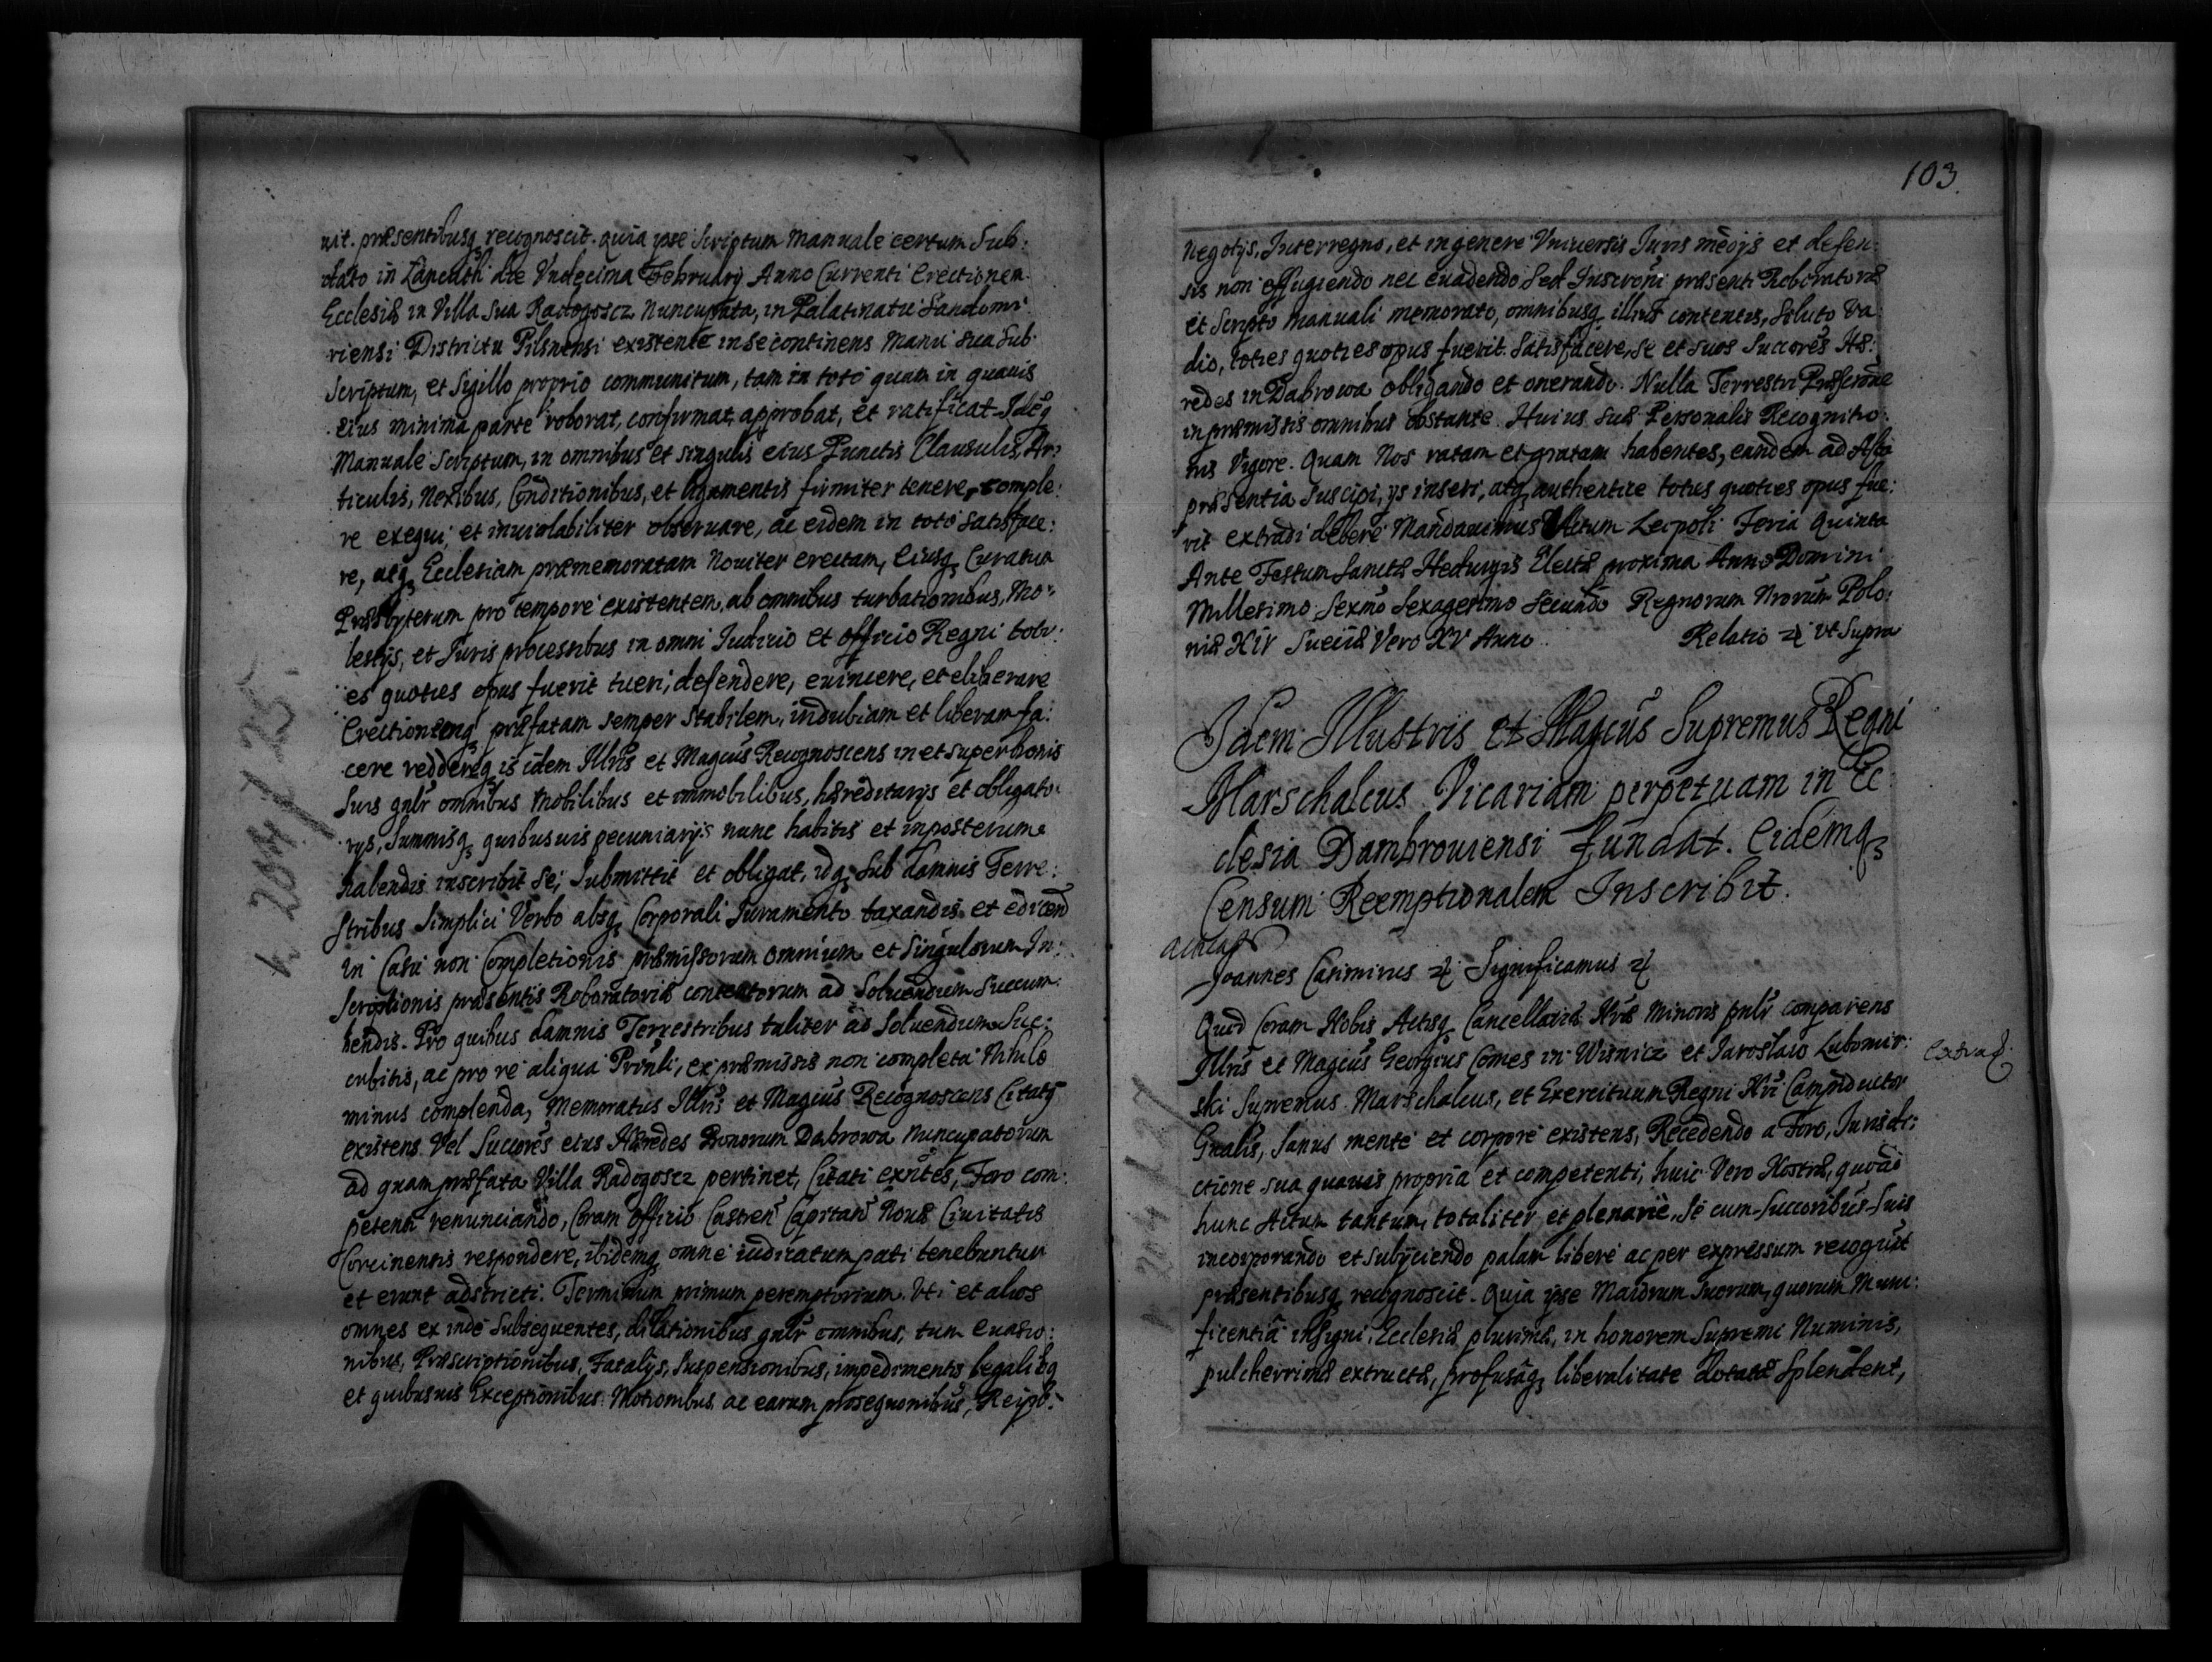 nit. præsentibusq3 recognoscit. quia ipse Scriptum Manuale certum Sub:
dato in Łancuth die Vndecima Februarij Anno Currenti Erectionem
Ecclesiæ in Villa Sua Radogoscz Nuncupata, in Palatinatu Sandomi:
riensi Districtu Pilsnensi existente in se continens Manu sua Sub:
Scriptum, et Sigillo proprio communitum, tam in toto quam in quauis
eius minima parte roborat, confirmat, approbat, et ratificat. Idẽq
Manuale Scriptum, in omnibus et singulis eius Punctis Clausulis, Ar:
ticulis, Nexibus, Conditionibus, et ligamentis firmiter tenere, comple:
re exequi, et inuiolabiliter obseruare, ac eidem in toto Satisface:
re, atq3 Ecclesiam præmemoratam Nouiter erectam, Eiusq3 Curatum
Præsbyterum pro tempore existentem, ab omnibus turbationibus, Mo:
lestijs, et Juris processibus in omni Judicio et officio Regni toti:
es quoties opus fuerit tueri, defendere, euincere, et eliberare
Erectionemq3 præfatam semper Stabilem, indubiam et liberam fa:
cere reddereq3 is idem Illr̃is et Magc̃us Recognoscens in et super bonis
Suis gñlr omnibus Mobilibus et immobilibus, hæreditarijs et obligato:
rijs, Summisq3 quibusuis pecuniarijs nunc habitis et inposterum
habendis inscribit Se, Submittit et obligat, idq3 Sub damnis Terre:
Stribus Simplici Verbo absq3 Corporali Juramento taxandis et edicend
in Casu non Completionis præmissorum omnium et Singulorum In:
Scriptionis præsentis Roboratoriæ contentorum ad Soluendum Succum:
bendis. Pro quibus damnis Terrestribus taliter ad Soluendum Suc:
cubitis, ac pro re aliqua Princ̃li, ex præmissis non completa Nihilo
minus complenda, Memoratus Illr̃is et Magc̃us Recognoscens Citatg
existens Vel Succõres eius Hæredes Bonorum Dabrowa Nuncupatorum
ad quam præfata Villa Radogoscz pertinet, Citati exñtes, Foro com:
petenti renunciando, Coram Officio Castreñ Capitañ Nouæ Ciuitatis
Corcinensis respondere, ibidemq3 omne iudicatum pati tenebuntur
et erunt adstricti. Terminum primum peremptorium. Vti et alios
omnes ex inde Subsequentes, dilationibus gñlr omnibus, tum Euasio:
nibus, Præscriptionibus, Fatalijs, Suspensionibus, impedimentis legalibg
et quibusuis Exceptionibus Motionibus ac earum prosequonibus, Reipb:
h 204 / 25.
103.
Negotijs, Interregno, et in genere Vniuersis Juris mẽdijs et defen:
sis non effugiendo nec euadendo Sed Inscrõni præsenti Roboratoriæ
et Scripto Manuali memorato, omnibusq3 illius contentis, Soluto Va:
dio, toties quoties opus fuerit. Satisfacere, Se et Suos Succõres Hæ:
redes in Dabrowa obligando et onerando. Nulla Terrestri Præscrõne
in præmissis omnibus obstante. Huius Suæ Personalis Recognitio:
nis Vigore. Quam Nos ratam et gratam habentes, eandem ad Acta
præsentia Suscipi, ijs inseri, atq3 authentice toties quoties opus fue:
rit extradi debere Mandauimus Actum Leopoli Feria Quinta
Ante Festum Sanctæ Heduigis Electæ proxima Anno Domini
Millesimo Sexm̃o Sexagesimo Secundo Regnorum Nrorum Polo:
niæ XIV Sueciæ Vero XV Anno. Relatio ꝛc Vt Supra
Idem Illustris et Magc̃us Supremus Regni
Marschalcus Vicariam perpetuam in Ec
clesia Dambrouiensi fundat. Eidemq3
Censum Reemptionalem Inscribit.
Joannes Casimirus ꝛc Significamus ꝛc
Quod Coram Nobis Actisq3 Cancellariæ Nr̃æ Minoris pñlr comparens
Illr̃is et Magc̃us Georgius Comes in Wisnicz et Jaroslaw Lubomir:
ski Supremus Marschalcus, et Exercituum Regni Nr̃i Campiductor
Gnalis, Sanus mente et corpore existens, Recedendo a Foro, Jurisdi:
ctione sua quauis propria et competenti, huic Vero Nostræ, quoad
hunc Actum tantum, totaliter et plenarie, Se cum Succoribus Suis
incorporando et Subijciendo palam libere ac per expressum recogũit
præsentibusq3 recognoscit. Quia ipse Maiorum Suorum, quorum Muni:
ficentia insigni, Ecclesiæ plurimæ, in honorem Supremi Numinis,
pulcherrimæ extructæ, profusaq3 liberalitate dotatæ Splendent,